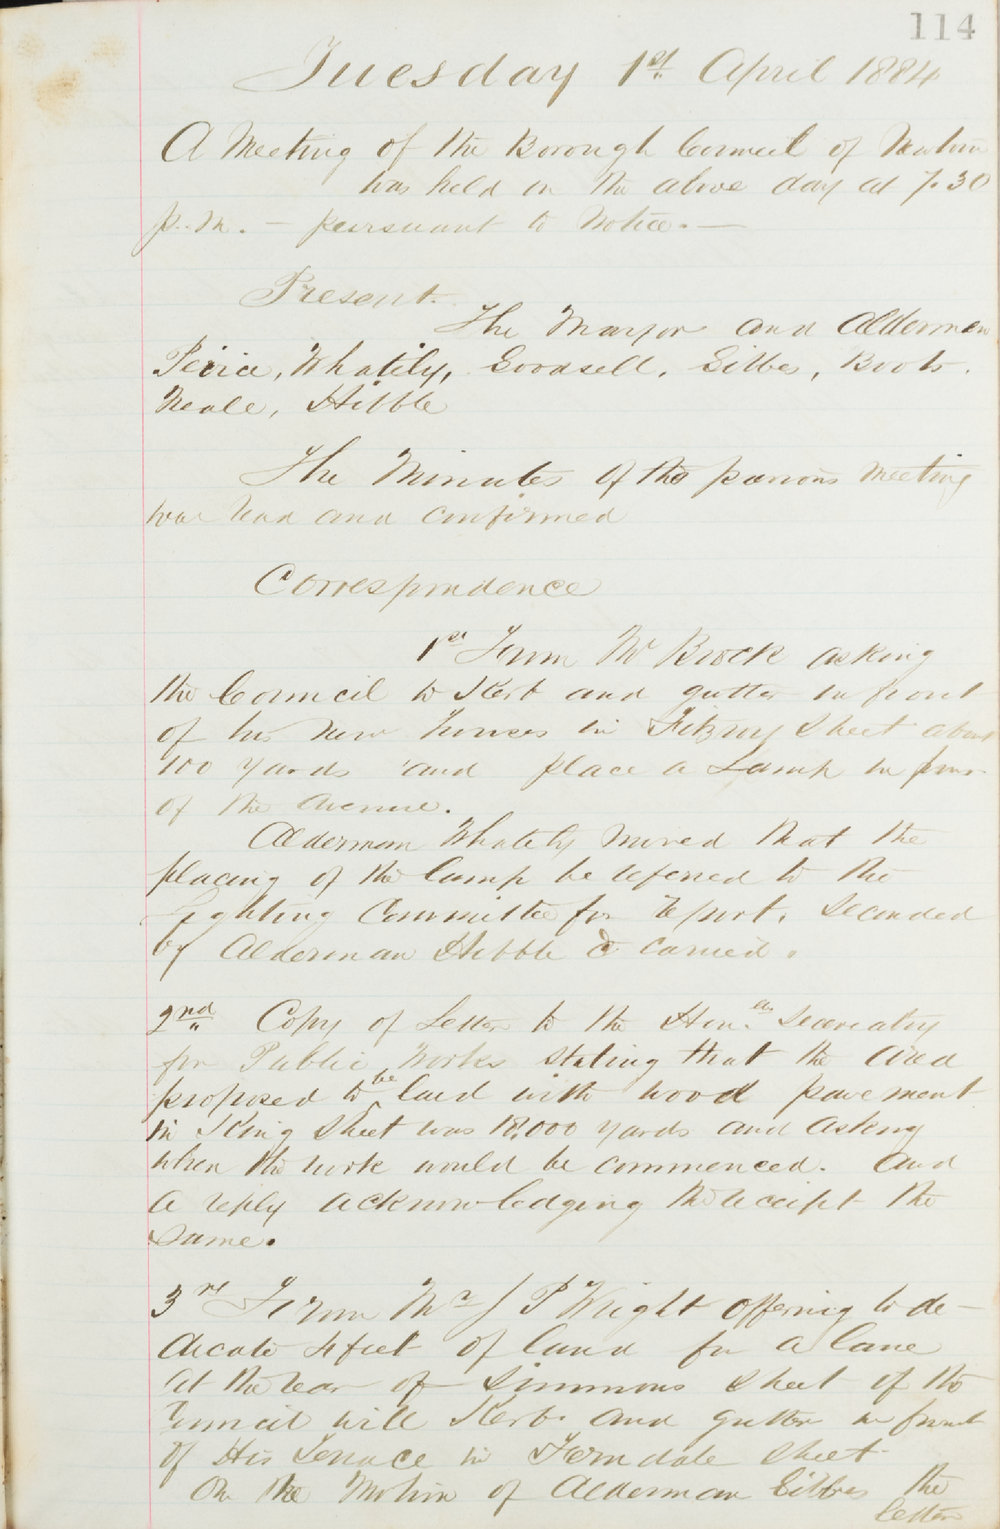 114
Tuesday 1st April 1884
A Meeting of the Borough Council of Newtown
was held on the above day at 7.30
p.m. – pursuant to Notice. –
Present.
The Mayor and Aldermen
Peirce, Whately, Goodsell, Gibbes, Boots.
Neale, Hibble
The Minutes of the previous meeting
was read and confirmed
Correspondence
1st From Mr Brock asking
the Council to Kerb and gutter in front
of his New Houses in Fitzroy Street about
100 yards and place a Lamp in front
of the Avenue.
Alderman Whately moved that the
placing of the lamp be referred to the
Lighting Committee for report. Seconded
by Alderman Hibble & carried.
2nd Copy of Letter to the Hon. Secreatry
for Public Works stating that the area
proposed to be laid with wood pavement
in King Street was 18,000 yards and asking
when the work would be commenced. And
a reply acknowledging the receipt the
same.
3rd From Mr J P Wright offering to de-
dicate 4 feet of land for a lane
at the rear of Simmons Street if the
Council will Kerb and gutter in front
of His Terrace in Ferndale Street
On the Motion of Alderman Gibbes the
letter